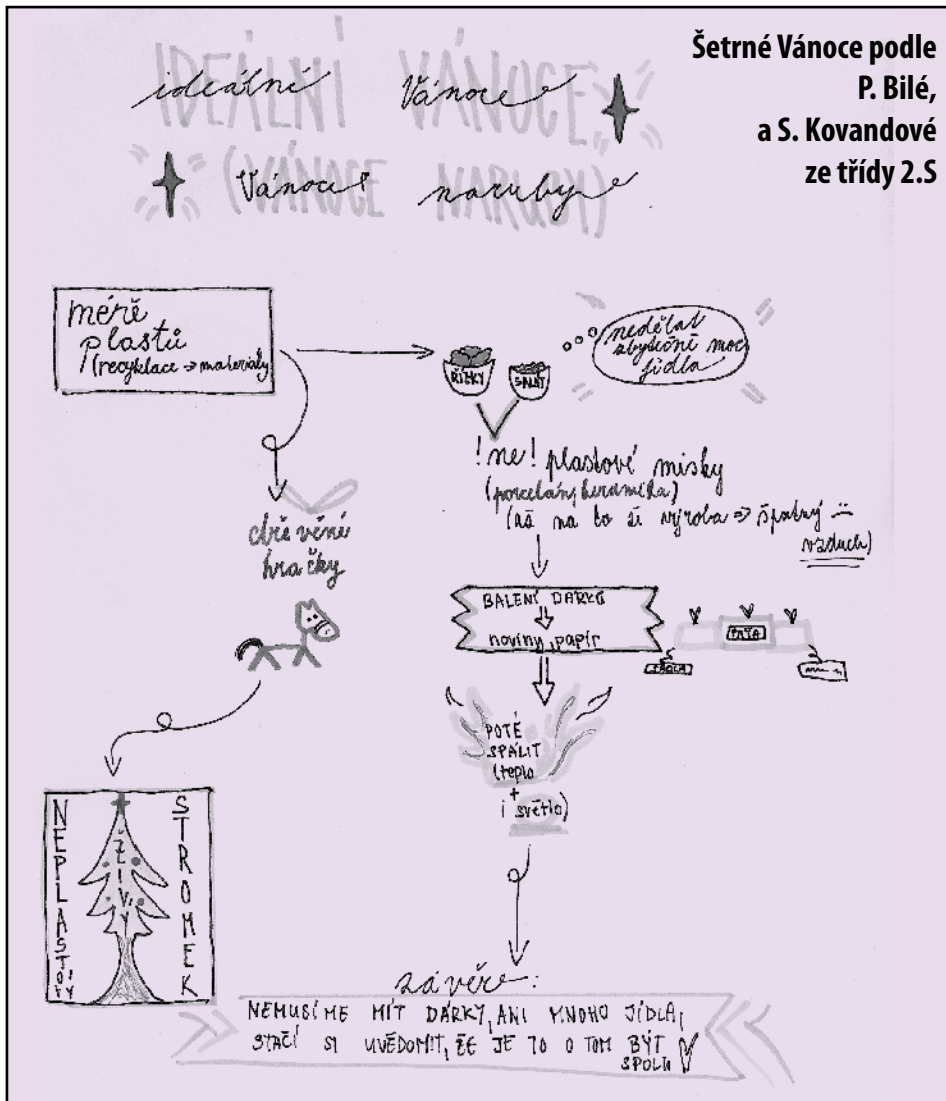 Šetrné Vánoce podle
P. Bilé,
a S. Kovandové
ze třídy 2.S
IDEÁLNÍ VÁNOCE
ideální Vánoce
(VÁNOCE NARUBY)
Vánoce naruby
méně
plastů
(recyklace → materiály)
ŘÍZKY
SALÁT
nedělat
zbytečně moc
jídla
!ne! plastové misky
(porcelán, keramika)
(až na to ši výroba ⇒ špatný
vzduch)
dřevěné
hračky
BALENÍ DÁRKŮ
noviny, papír
TÁŤA
POTÉ
SPÁLIT
(teplo
+
i světlo)
NEPLASTOVÝ
ŽIVÝ
STROMEK
závěr:
NEMUSÍME MÍT DÁRKY, ANI MNOHO JÍDLA,
STAČÍ SI UVĚDOMIT, ŽE JE TO O TOM BÝT
SPOLU